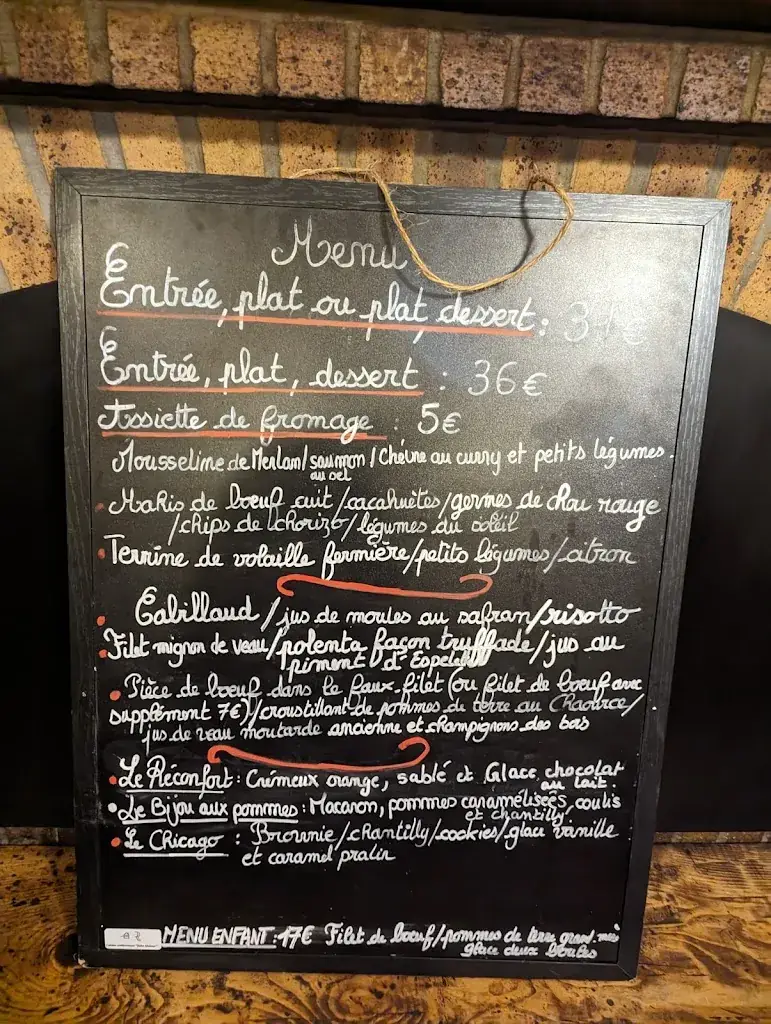 Menu
Entrée, plat ou plat, dessert : 31€
Entrée, plat, dessert : 36€
Assiette de fromage : 5€
Mousseline de Merlan/saumon/Chèvre au curry et petits légumes.
au sel
• Makis de boeuf cuit/cacahuètes/germes de chou rouge
/chips de chorizo/légumes du soleil
• Terrine de volaille fermière/petits légumes/citron
• Cabillaud/jus de moules au safran/risotto
• Filet mignon de veau/polenta façon truffade/jus au
piment d'Espelette
• Pièce de boeuf dans le faux filet (ou filet de boeuf avec
supplément 7€)/croustillant de pommes de terre au Chaource/
jus de veau moutarde ancienne et champignons des bas
• Le Réconfort : Crémeux orange, sablé et Glace chocolat
au lait.
• Le Bijou aux pommes : Macaron, pommes caramélisées, coulis
et chantilly.
• Le Chicago : Brownie/chantilly/cookies/glace vanille
et caramel pralin
MENU ENFANT : 17€ Filet de boeuf/pommes de terre grand-mè
glace deux boules